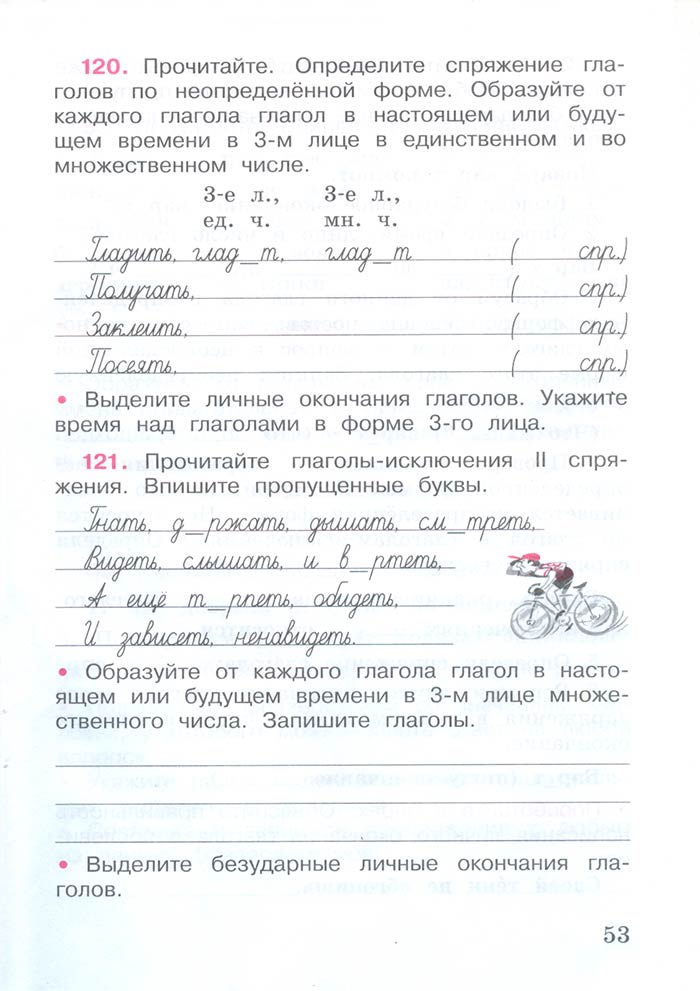 120. Прочитайте. Определите спряжение гла-
голов по неопределённой форме. Образуйте от
каждого глагола глагол в настоящем или буду-
щем времени в 3-м лице в единственном и во
множественном числе.
3-е л., 3-е л.,
ед. ч. мн. ч.
Гладить, глад_т, глад_т ( спр.)
Получать, ( спр.)
Заклеить, ( спр.)
Посеять, ( спр.)
• Выделите личные окончания глаголов. Укажите
время над глаголами в форме 3-го лица.
121. Прочитайте глаголы-исключения II спря-
жения. Впишите пропущенные буквы.
Гнать, д_ржать, дышать, см_треть,
Видеть, слышать, и в_ртеть,
А ещё т_рпеть, обидеть,
И зависеть, ненавидеть.
• Образуйте от каждого глагола глагол в насто-
ящем или будущем времени в 3-м лице множе-
ственного числа. Запишите глаголы.
• Выделите безударные личные окончания гла-
голов.
53